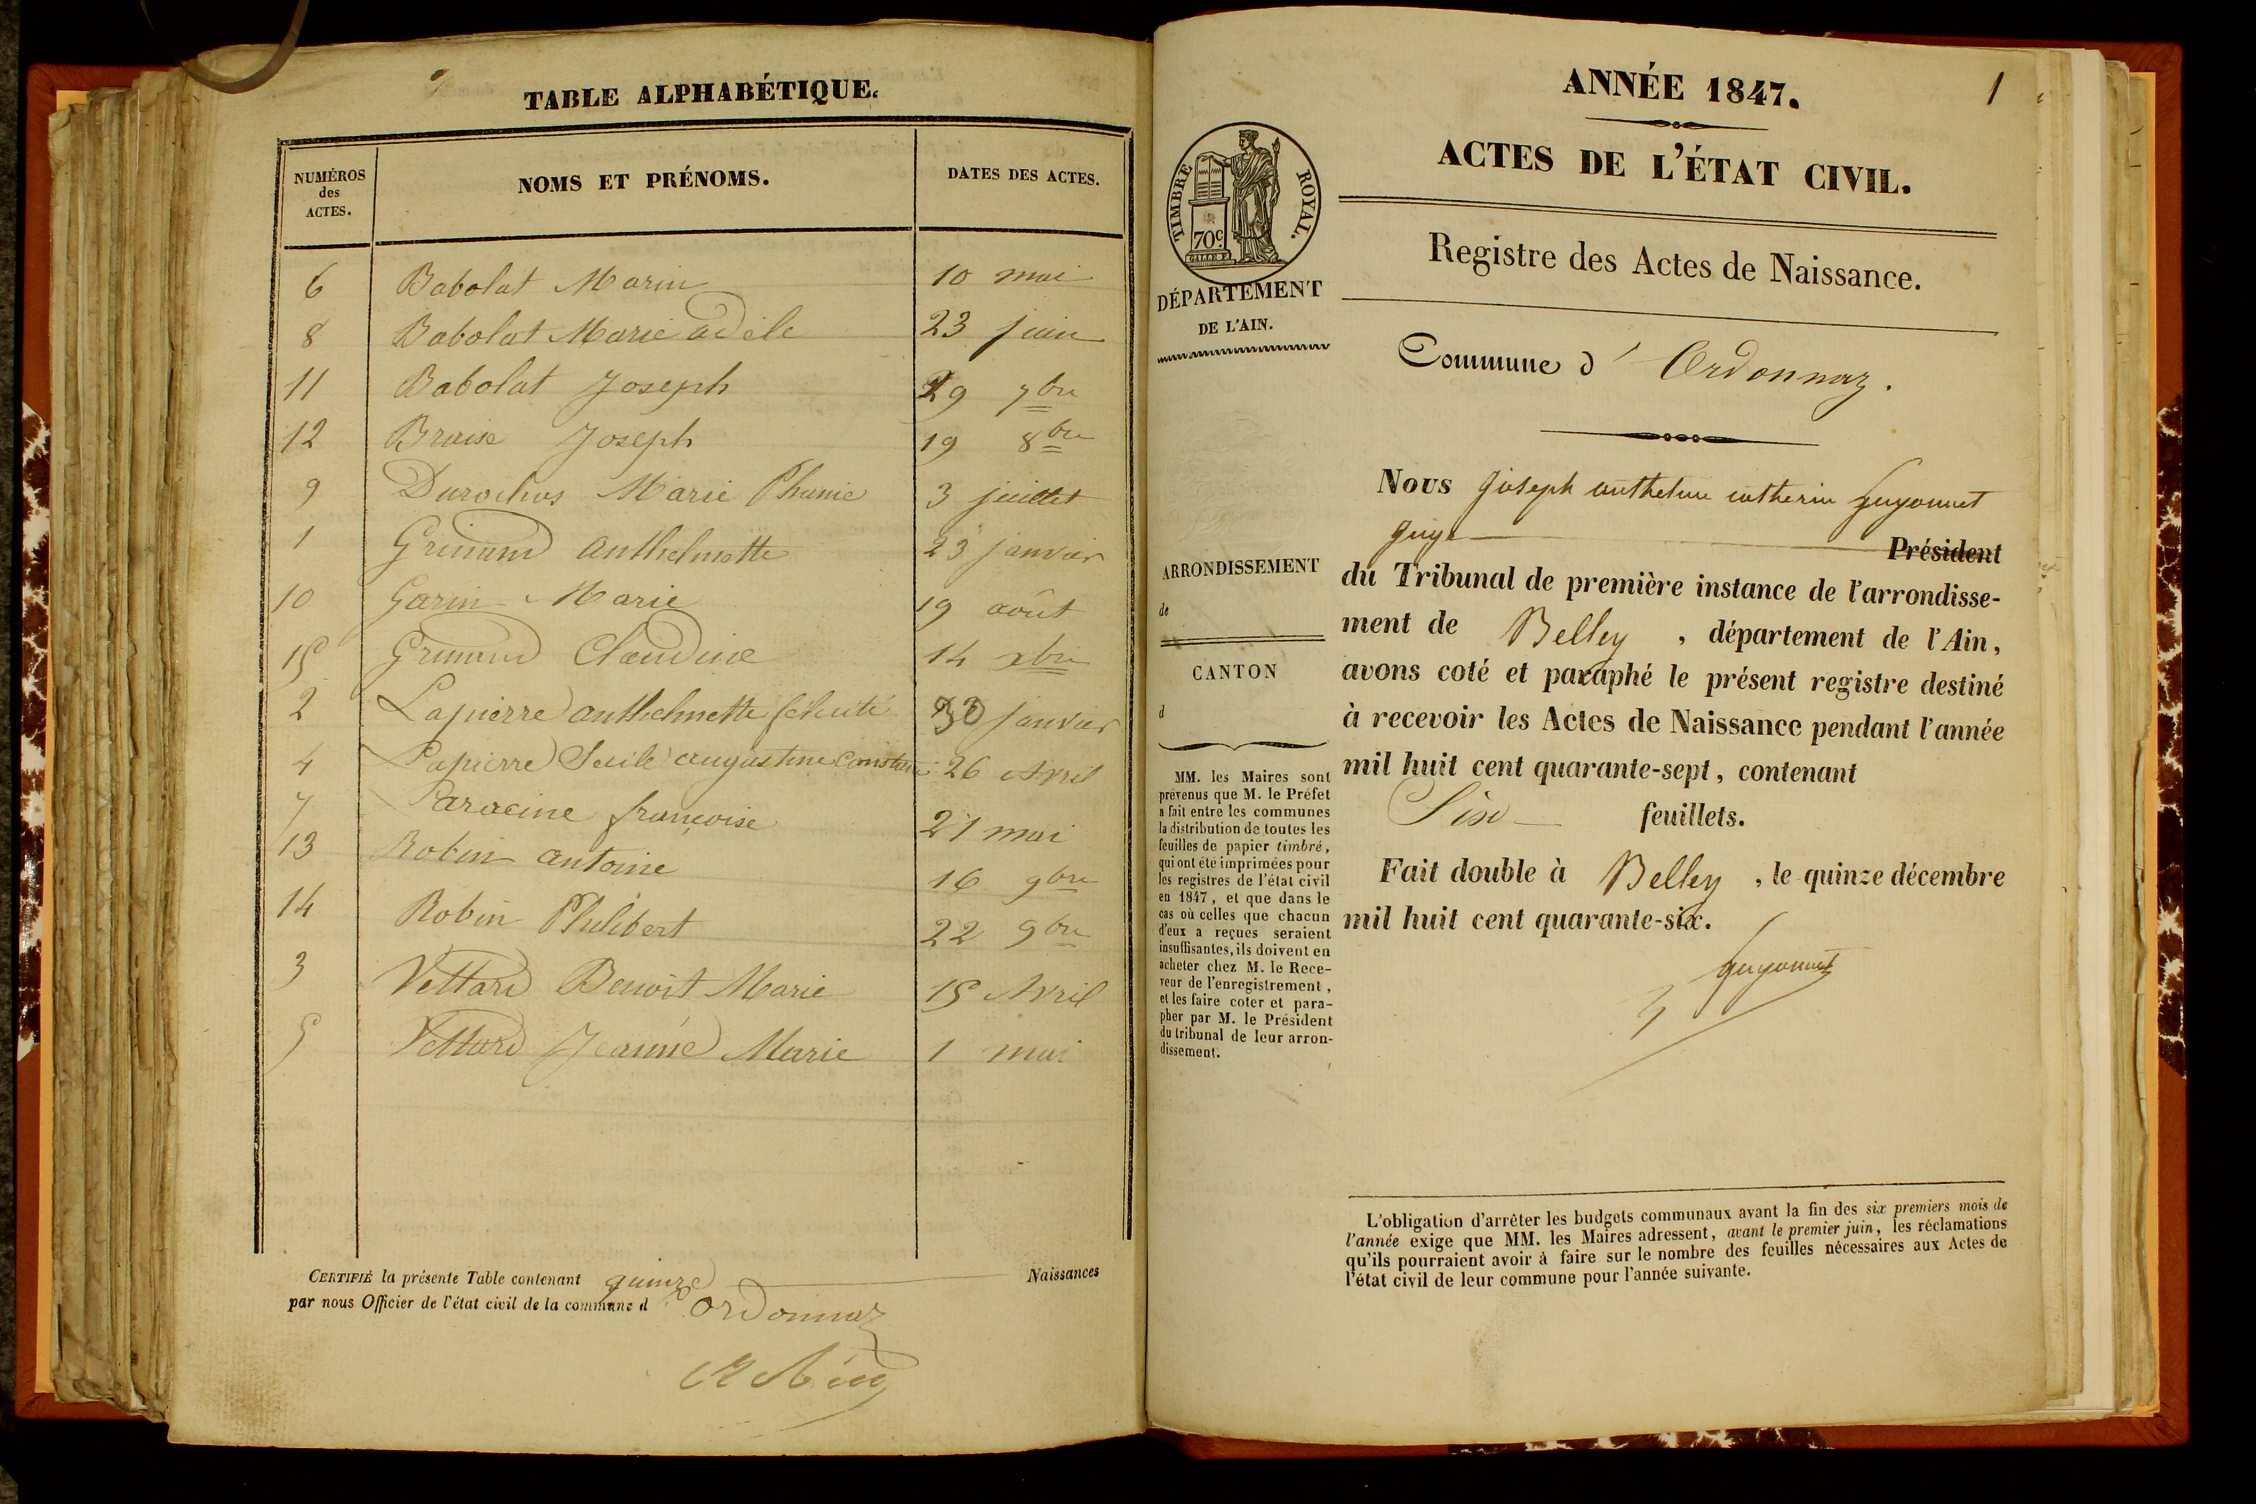 TABLE ALPHABÉTIQUE.
NUMÉROS des ACTES. NOMS ET PRÉNOMS. DATES DES ACTES.
6 Babolat Marin 10 mai
8 Babolat Marie adèle 23 juin
11 Babolat Joseph 29 7bre
12 Braise Joseph 19 8bre
9 Durochas Marie 3 juillet
1 Grimand anthelmette 23 janvier
10 Garin Marie 19 août
15 Grimand Claudine 14 xbre
2 Lapierre anthelmette félicité 30 janvier
4 Lapierre augustine 26 Avril
7 Paracine françoise 21 mai
13 Robin antoine 16 9bre
14 Robin Philibert 22 9bre
3 Vettard Benoit Marie 15 Avril
5 Vettard Jeanne Marie 1 mai
CERTIFIÉ la présente Table contenant quinze Naissances
par nous Officier de l'état civil de la commune d ordonnaz
1
ANNÉE 1847.
ACTES DE L'ÉTAT CIVIL.
TIMBRE ROYAL.
70c.
DÉPARTEMENT
DE L'AIN.
Registre des Actes de Naissance.
Commune d' Ordonnaz.
ARRONDISSEMENT
de
CANTON
d
MM. les Maires sont
prévenus que M. le Préfet
a fait entre les communes
la distribution de toutes les
feuilles de papier timbré,
qui ont été imprimées pour
les registres de l'état civil
en 1847, et que dans le
cas où celles que chacun
d'eux a reçues seraient
insuffisantes, ils doivent en
acheter chez M. le Rece-
veur de l'enregistrement,
et les faire coter et para-
pher par M. le Président
du tribunal de leur arron-
dissement.
Nous joseph anthelme guyonnet
juge Président
du Tribunal de première instance de l'arrondisse-
ment de Belley, département de l'Ain,
avons coté et paraphé le présent registre destiné
à recevoir les Actes de Naissance pendant l'année
mil huit cent quarante-sept, contenant
Six feuillets.
Fait double à Belley, le quinze décembre
mil huit cent quarante-six.
guyonnet
L'obligation d'arrêter les budgets communaux avant la fin des six premiers mois de
l'année exige que MM. les Maires adressent, avant le premier juin, les réclamations
qu'ils pourraient avoir à faire sur le nombre des feuilles nécessaires aux Actes de
l'état civil de leur commune pour l'année suivante.